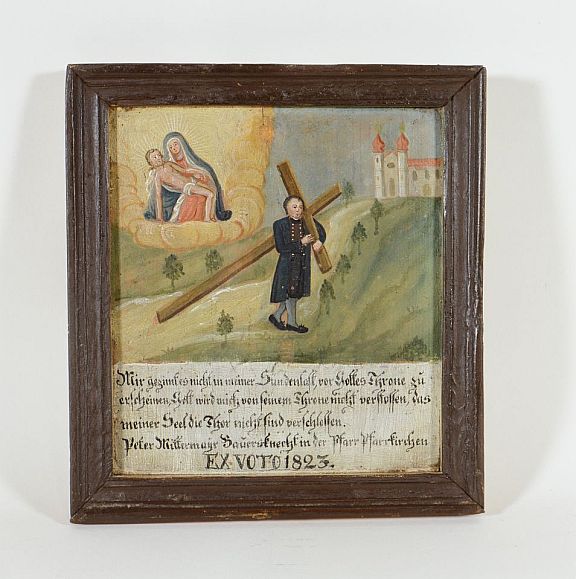 Mir gezimt es nicht in meiner Sündenlast, vor Gottes Throne zu
erscheinen, Gott wird mich von seinem Throne nicht verstossen, das
meiner Seel die Thor nicht sind verschlossen.
Peter Mittermayr Bauersknecht in der Pfarr Pfarrkirchen
EX VOTO 1823.